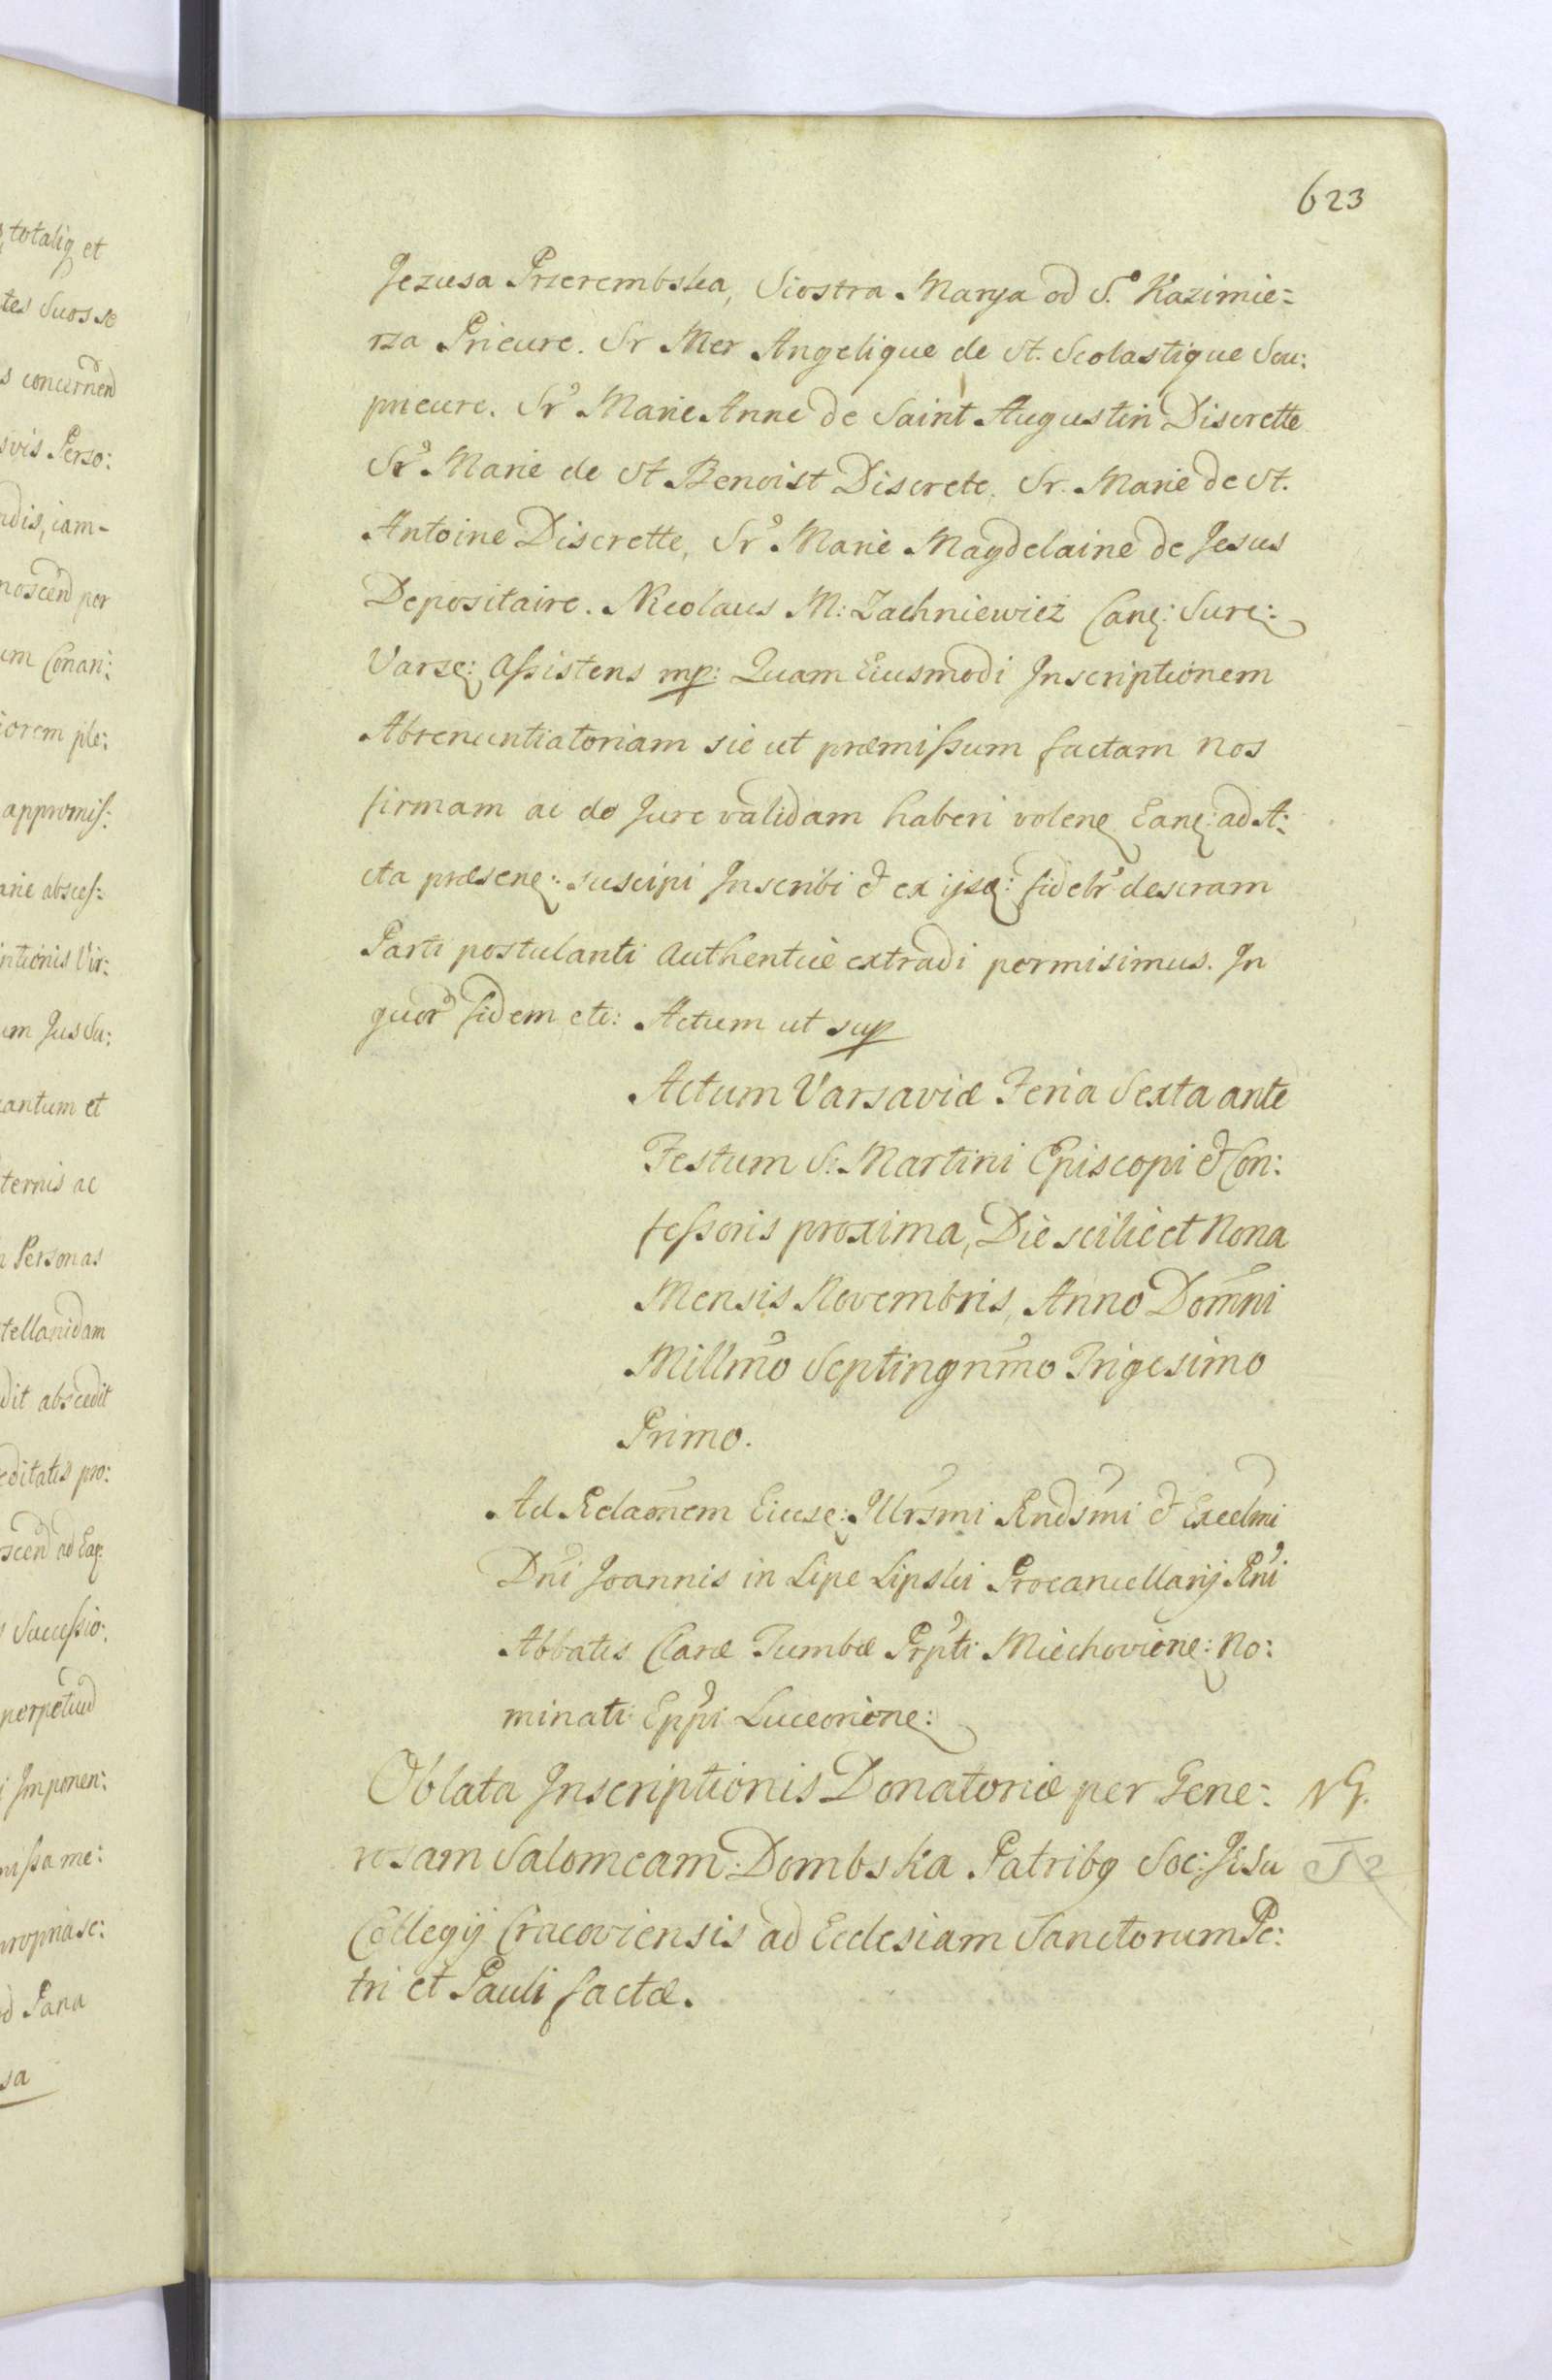 623
Jezusa Przerembska, Siostra Marya od S.º Kazimie=
rza Prieure. Sr Mer Angelique de St. Scolastique Sou:
prieure. Sr Marie Anne de Saint Augustin Discrette
Sr Marie de St Benoist Discrete, Sr. Marie de St.
Antoine Discrette, Sr Marie Magdelaine de Jesus
Depositaire. Nicolaus M: Zachniewicz Canc: Surr:
Varsc: Assistens mp: Quam Eiusmodi Inscriptionem
Abrenuntiatoriam sic ut præmissum factam Nos
firmam ac de Jure validam haberi volenc Eanc: ad A:
cta præsenc: suscipi Inscribi & ex ijsc: fidelr descram
Parti postulanti Authentice extradi permisimus. In
quor fidem etc: Actum ut sup
Actum Varsaviæ Feria Sexta ante
Festum S: Martini Episcopi & Con:
fessoris proxima, Die scilicet Nona
Mensis Novembris, Anno Domni
Millmo Septingnmo Trigesimo
Primo.
Ad Relaonem Eiusc: Illrsmi Rndsmi & Excelmi
Dni Joannis in Lipe Lipski Procancellarij Rni
Abbatis Claræ Tumbæ Prpti Miechovienc: No:
minati Eppi Luceorienc:
Oblata Inscriptionis Donatoriæ per Gene:
rosam Salomeam Dombska Patribg Soc: Jesu
Collegij Cracoviensis ad Ecclesiam Sanctorum Pe:
tri et Pauli factæ.
totaliq et
tes Suos se
s concernend
svis Perso:
ndis, iam-
noscend per
um Conari:
iorem ple:
appromiss:
arie absces:
intionis Vir:
um Jus Su:
antum et
ternis ac
a Personas
tellanidam
dit abscedit
editatis pro:
scend ad Eaq
s Successio:
perpetuud
i Imponen:
nissa me:
propriasc:
od Pana
sa